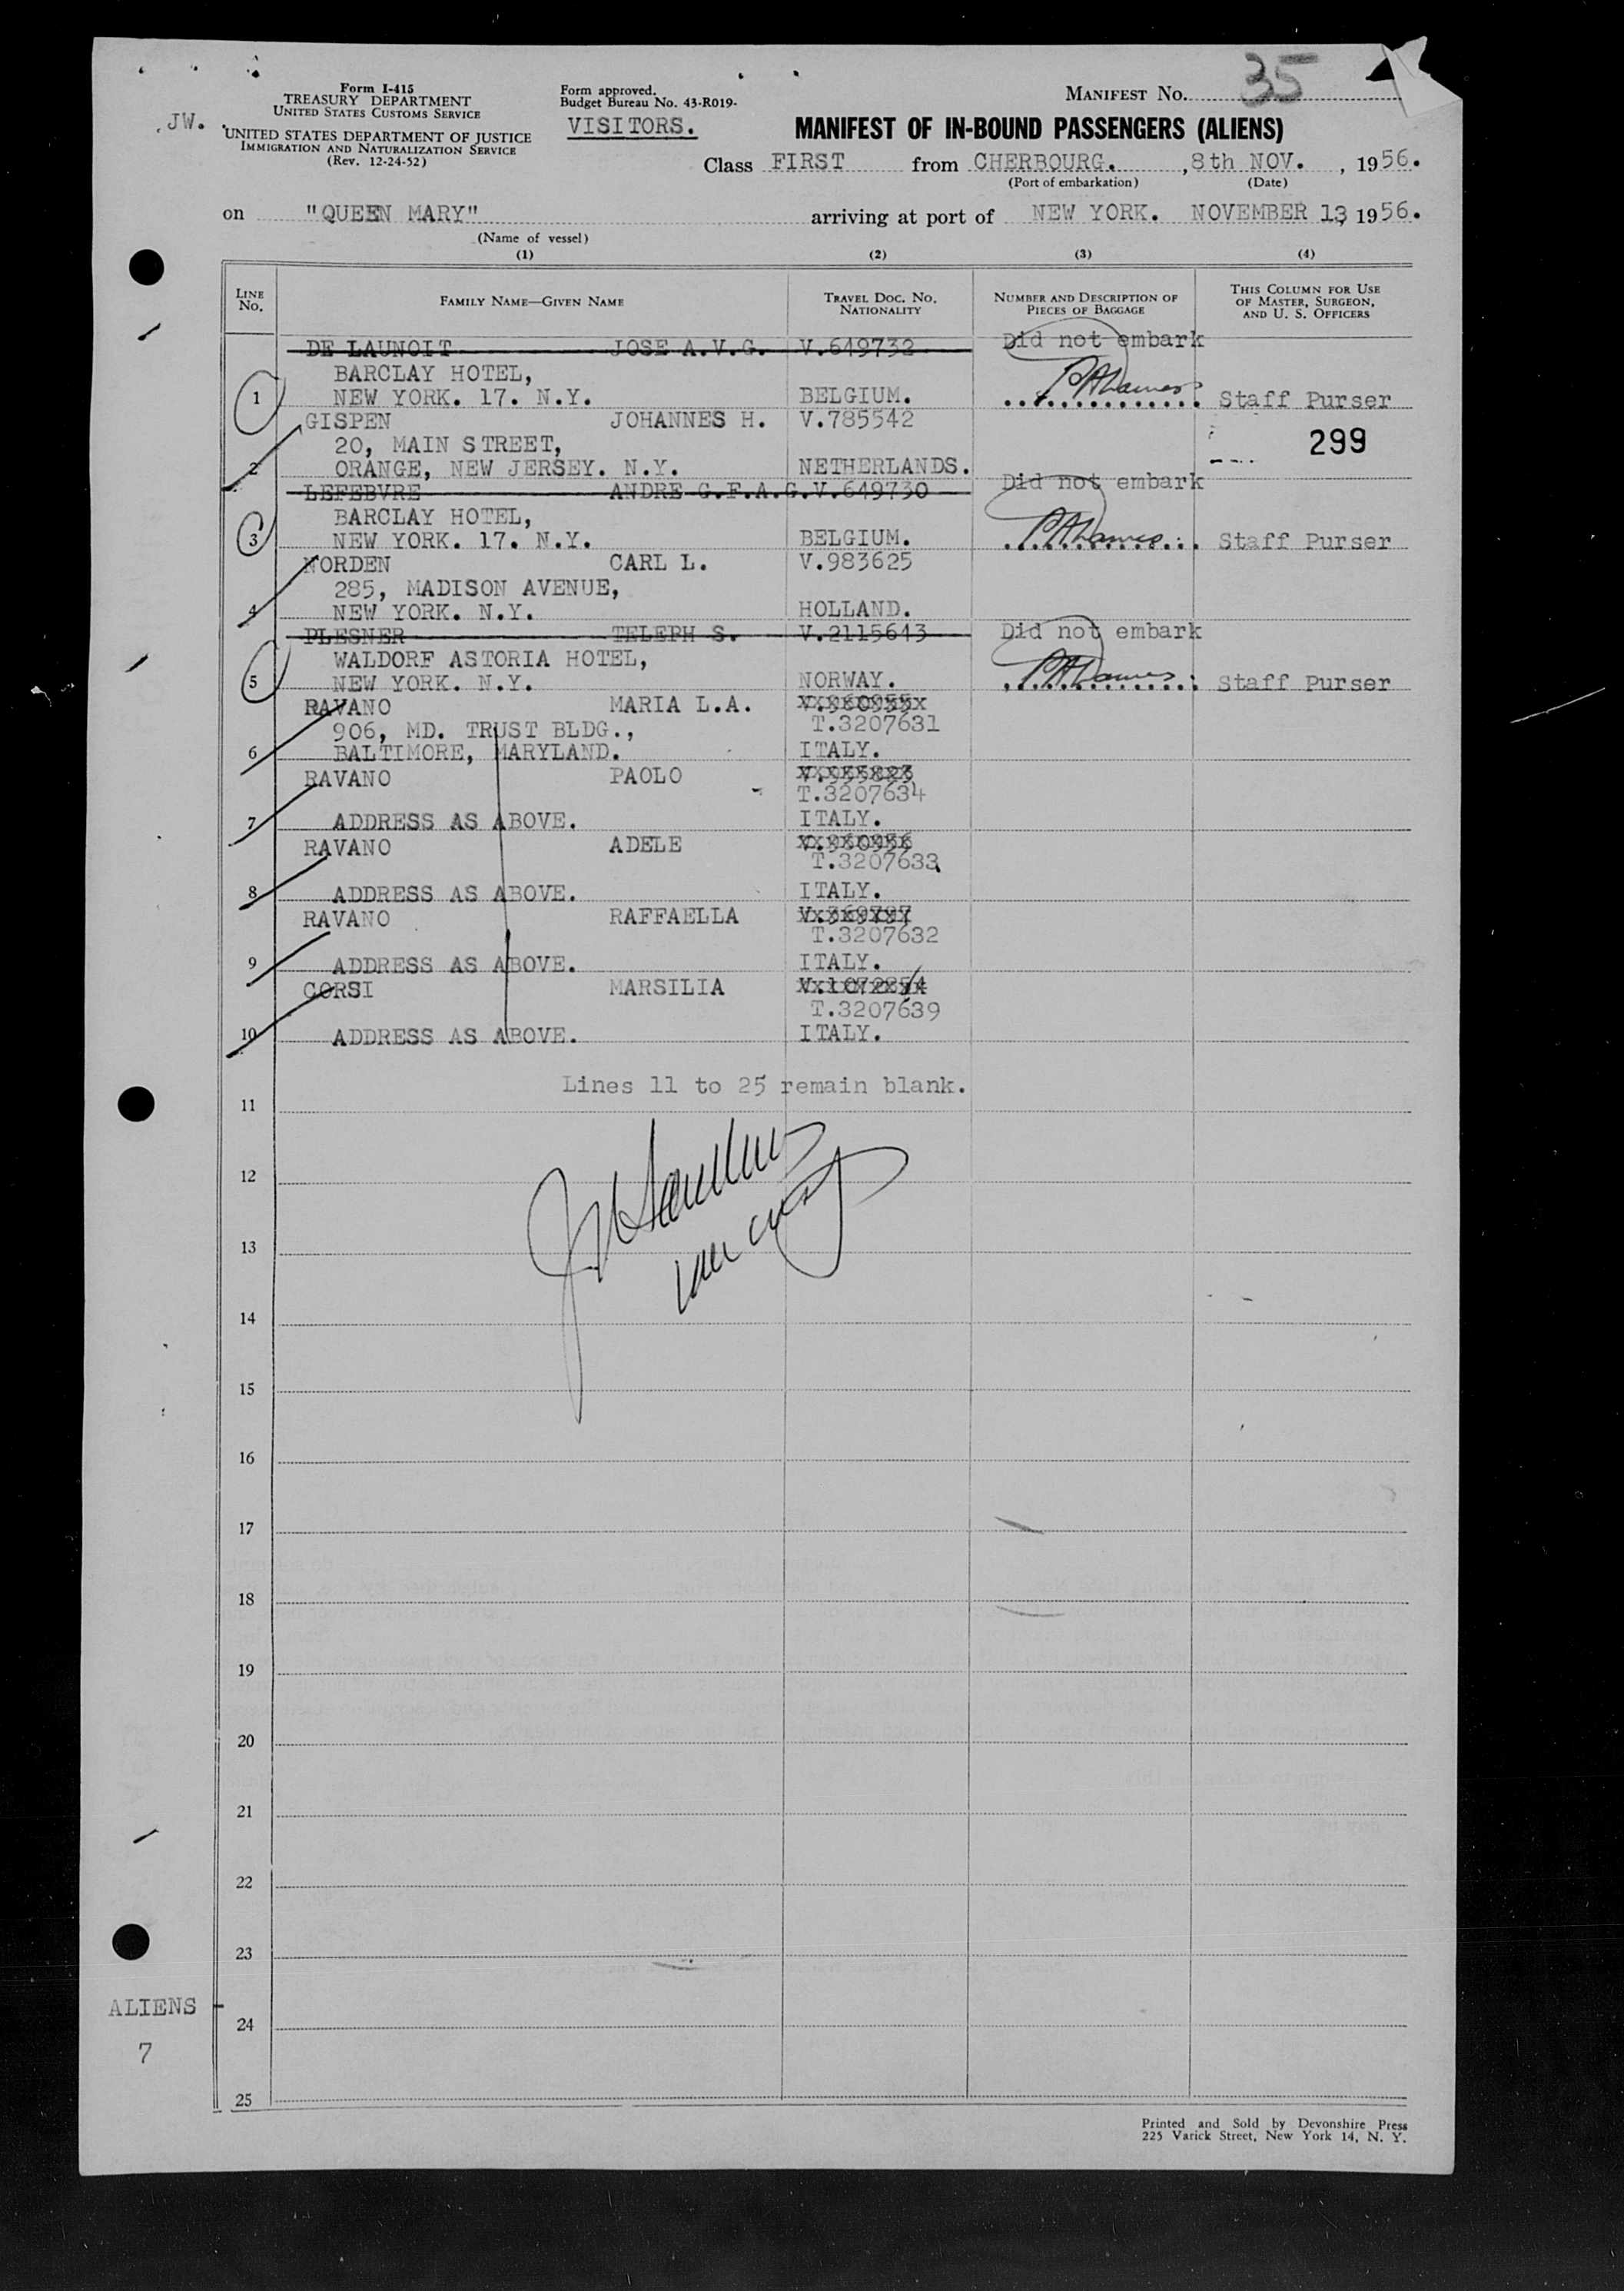 35
Form I-415
TREASURY DEPARTMENT
UNITED STATES CUSTOMS SERVICE
Form approved.
Budget Bureau No. 43-R019-
MANIFEST No.
JW.
UNITED STATES DEPARTMENT OF JUSTICE
IMMIGRATION AND NATURALIZATION SERVICE
(Rev. 12-24-52)
VISITORS.
MANIFEST OF IN-BOUND PASSENGERS (ALIENS)
Class FIRST from CHERBOURG. , 8th NOV. , 1956.
(Port of embarkation) (Date)
on "QUEEN MARY" arriving at port of NEW YORK. NOVEMBER 13, 1956.
(Name of vessel)
(1) (2) (3) (4)
LINE NO. FAMILY NAME—GIVEN NAME TRAVEL DOC. NO. NATIONALITY NUMBER AND DESCRIPTION OF PIECES OF BAGGAGE THIS COLUMN FOR USE OF MASTER, SURGEON, AND U. S. OFFICERS
DE LAUNOIT JOSE A.V.G. V.649732 Did not embark
BARCLAY HOTEL,
1 NEW YORK. 17. N.Y. BELGIUM. Staff Purser
GISPEN JOHANNES H. V.785542
20, MAIN STREET, 299
2 ORANGE, NEW JERSEY. N.Y. NETHERLANDS.
LEFEBVRE ANDRE G.F.A.G. V.649730 Did not embark
BARCLAY HOTEL,
3 NEW YORK. 17. N.Y. BELGIUM. Staff Purser
NORDEN CARL L. V.983625
285, MADISON AVENUE,
4 NEW YORK. N.Y. HOLLAND.
PLESNER TELEPH S. V.2115643 Did not embark
WALDORF ASTORIA HOTEL,
5 NEW YORK. N.Y. NORWAY. Staff Purser
RAVANO MARIA L.A.
906, MD. TRUST BLDG., T.3207631
6 BALTIMORE, MARYLAND. ITALY.
RAVANO PAOLO
T.3207634
7 ADDRESS AS ABOVE. ITALY.
RAVANO ADELE
T.3207633
8 ADDRESS AS ABOVE. ITALY.
RAVANO RAFFAELLA
T.3207632
9 ADDRESS AS ABOVE. ITALY.
CORSI MARSILIA
T.3207639
10 ADDRESS AS ABOVE. ITALY.
Lines 11 to 25 remain blank.
11
12
13
14
15
16
17
18
19
20
21
22
23
ALIENS
24
7
25
Printed and Sold by Devonshire Press
225 Varick Street, New York 14, N. Y.